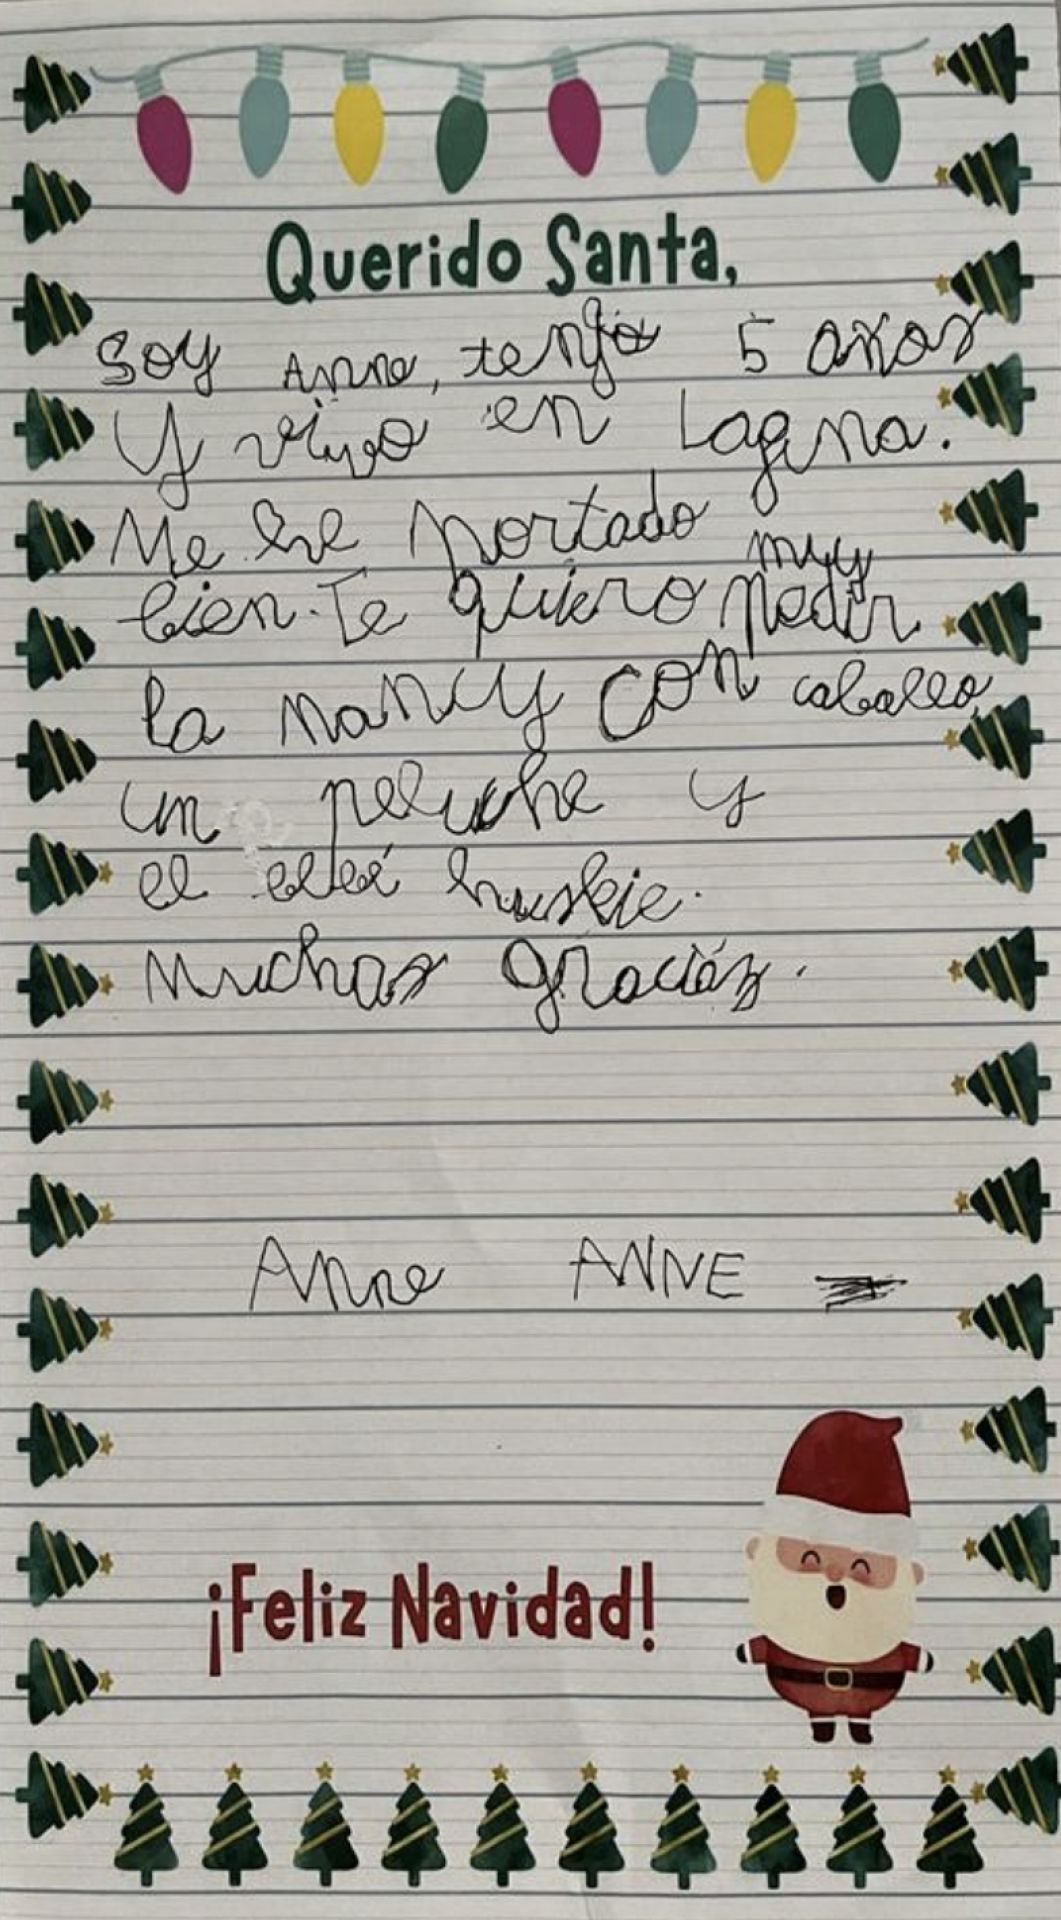 Querido Santa,
Soy Anne, tengo 5 años
Y vivo en Laguna.
Me he portado muy
bien. Te quiero pedir
la nancy con caballo,
un peluche y
el bebé huskie.
Muchas gracias.
Anne ANNE
¡Feliz Navidad!